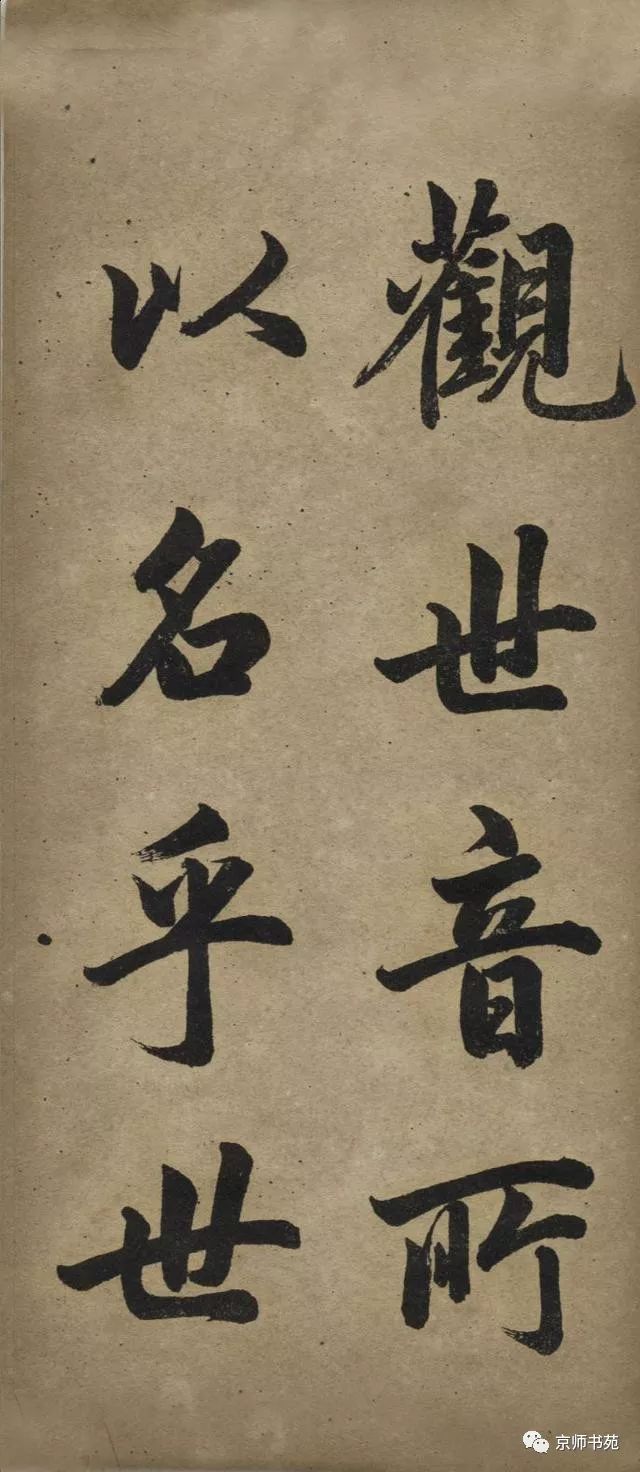 觀世音所
以名乎世
京师书苑